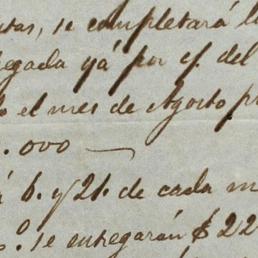 tas, se completará l
egada yá por q. del
o el mes de Agosto p
.000 —
á 6. y 21. de cada m
o. se entregarán $ 22